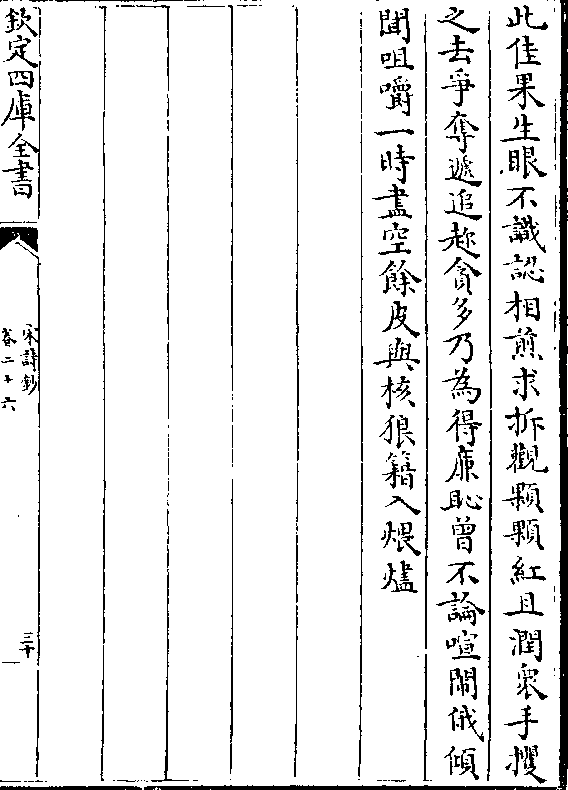 此佳果生眼不識認相煎求拆觀顆顆紅且潤衆手攫
之去爭奪遞追趂貪多乃為得廉恥曾不論喧鬧俄傾
聞咀嚼一時盡空餘皮與核狼籍入煨爐
欽定四庫全書
宋詩鈔
卷二十六
三十